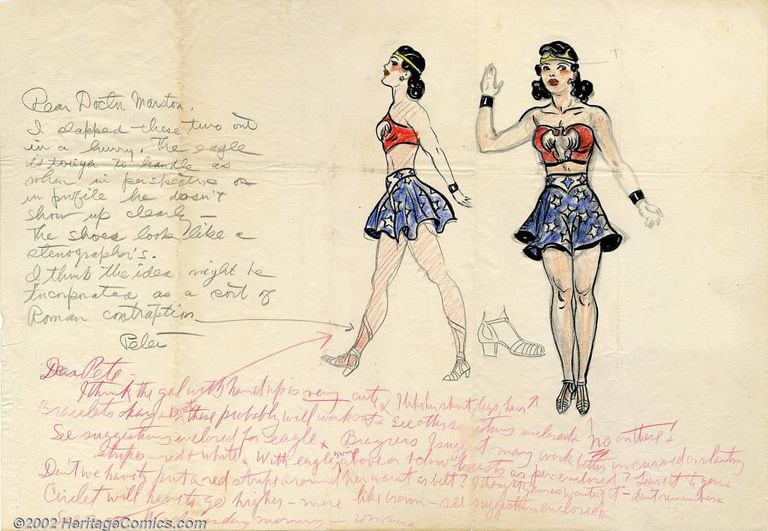 Dear Doctor Marston,
I slapped these two out
in a hurry. The eagle
is tough to handle as
when in perspective or
in profile he doesn't
show up clearly —
The shoes look like a
stenographer's.
I think the idea might be
incorporated as a sort of
Roman contraption.
Peter
Dear Pete —
I think the gal with hand up is very cute. I like her skirt, legs, hair.
Bracelets okay + these probably will work out. See other suggestions enclosed. No on these +
See suggestions enclosed for eagle + Brassiere I suggest may work better in curved or slanting
stripes — red + white. With eagle's above or below breasts as per enclosed? Leave it to you.
Don't we have to put a red stripe around her waist as belt? I thought wanted it — don't remember.
Circlet will have to go higher — more like crown — see suggestions enclosed.
morning —
©2002 HeritageComics.com